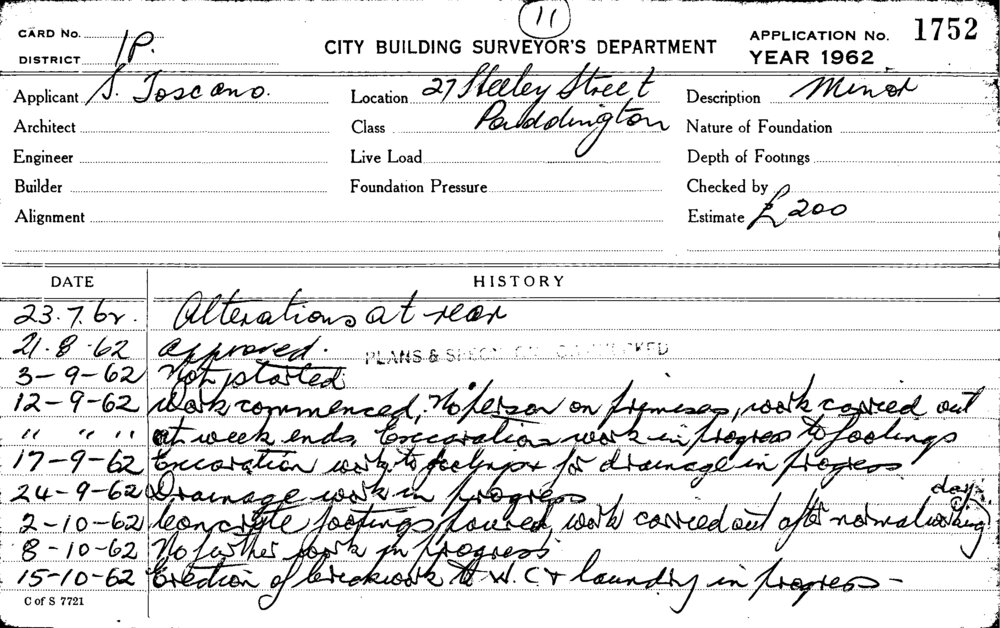 11
CARD No.
DISTRICT 1P.
CITY BUILDING SURVEYOR'S DEPARTMENT
APPLICATION No. 1752
YEAR 1962
Applicant S. Toscano. Location 27 Heeley Street Description Minor
Architect Class Paddington Nature of Foundation
Engineer Live Load Depth of Footings
Builder Foundation Pressure Checked by
Alignment Estimate £200
DATE HISTORY
23.7.62. Alterations at rear
21-8-62 approved. PLANS & SPECN
3-9-62 Not started
12-9-62 Work commenced, No person on premises, work carried out
" " " at week ends. Excavation work in progress to footings
17-9-62 Excavation work to footings & for drainage in progress
24-9-62 Drainage work in progress
2-10-62 Concrete footings poured, work carried out after normal working day.
8-10-62 No further work in progress
15-10-62 Erection of brickwork to W.C & laundry in progress -
C of S 7721